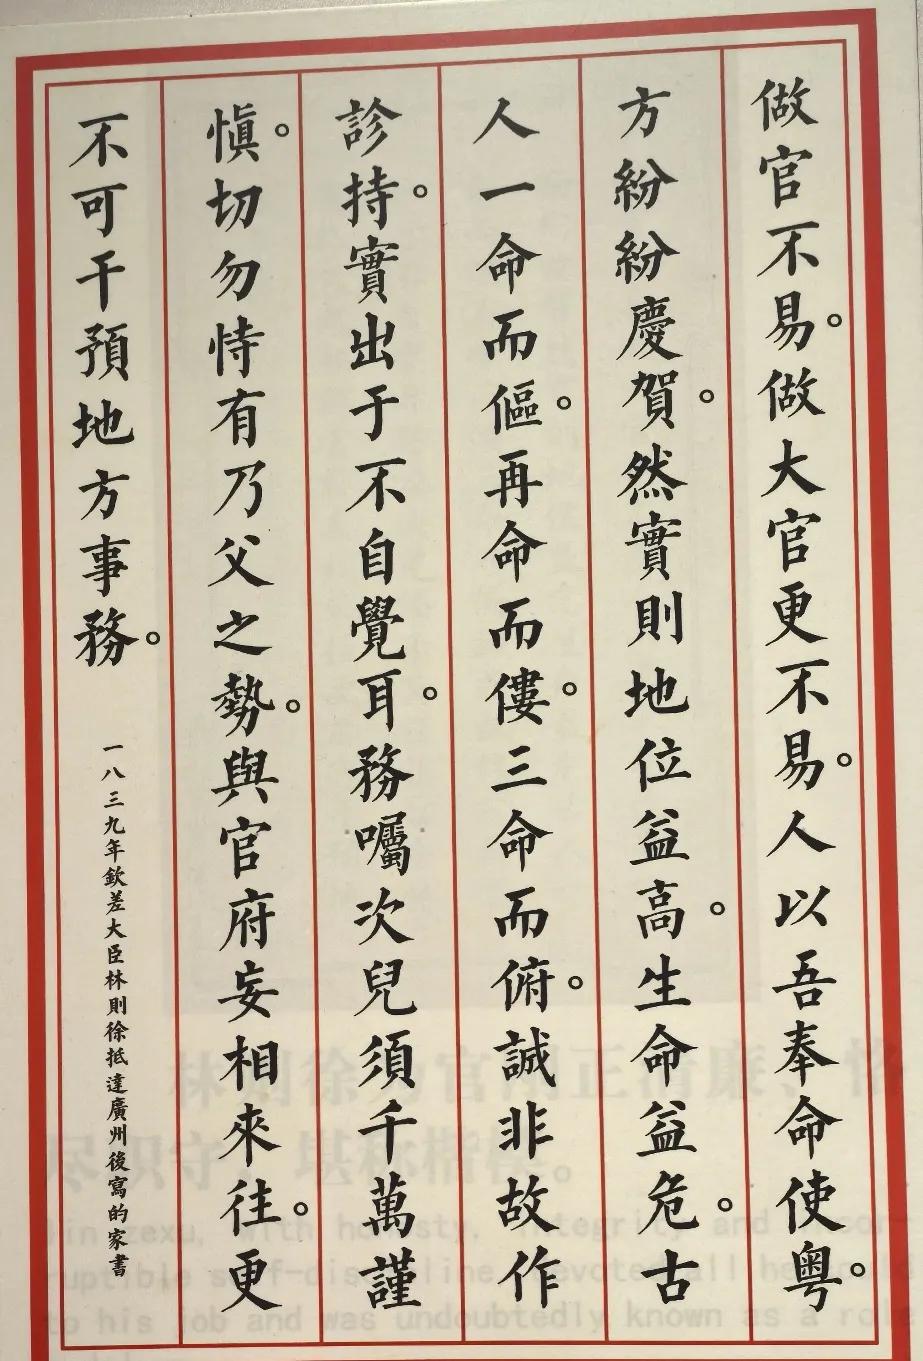 做官不易。做大官更不易。人以吾奉命使粵。
方紛紛慶賀。然實則地位益高。生命益危。古
人一命而傴。再命而僂。三命而俯。誠非故作
診持。實出于不自覺耳。務囑次兒須千萬謹
愼。切勿恃有乃父之勢。與官府妄相來往。更
不可干預地方事務。
一八三九年欽差大臣林則徐抵達廣州後寫的家書
林则徐为官刚正清廉、恪
尽职守，堪称楷模。
Lin zexu, with honesty, integrity and incor-
ruptible self-discipline, devoted all he could
to his job and was undoubtedly known as a role